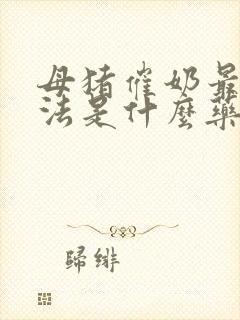 母猪催奶最
法是什麼藥
歸緋